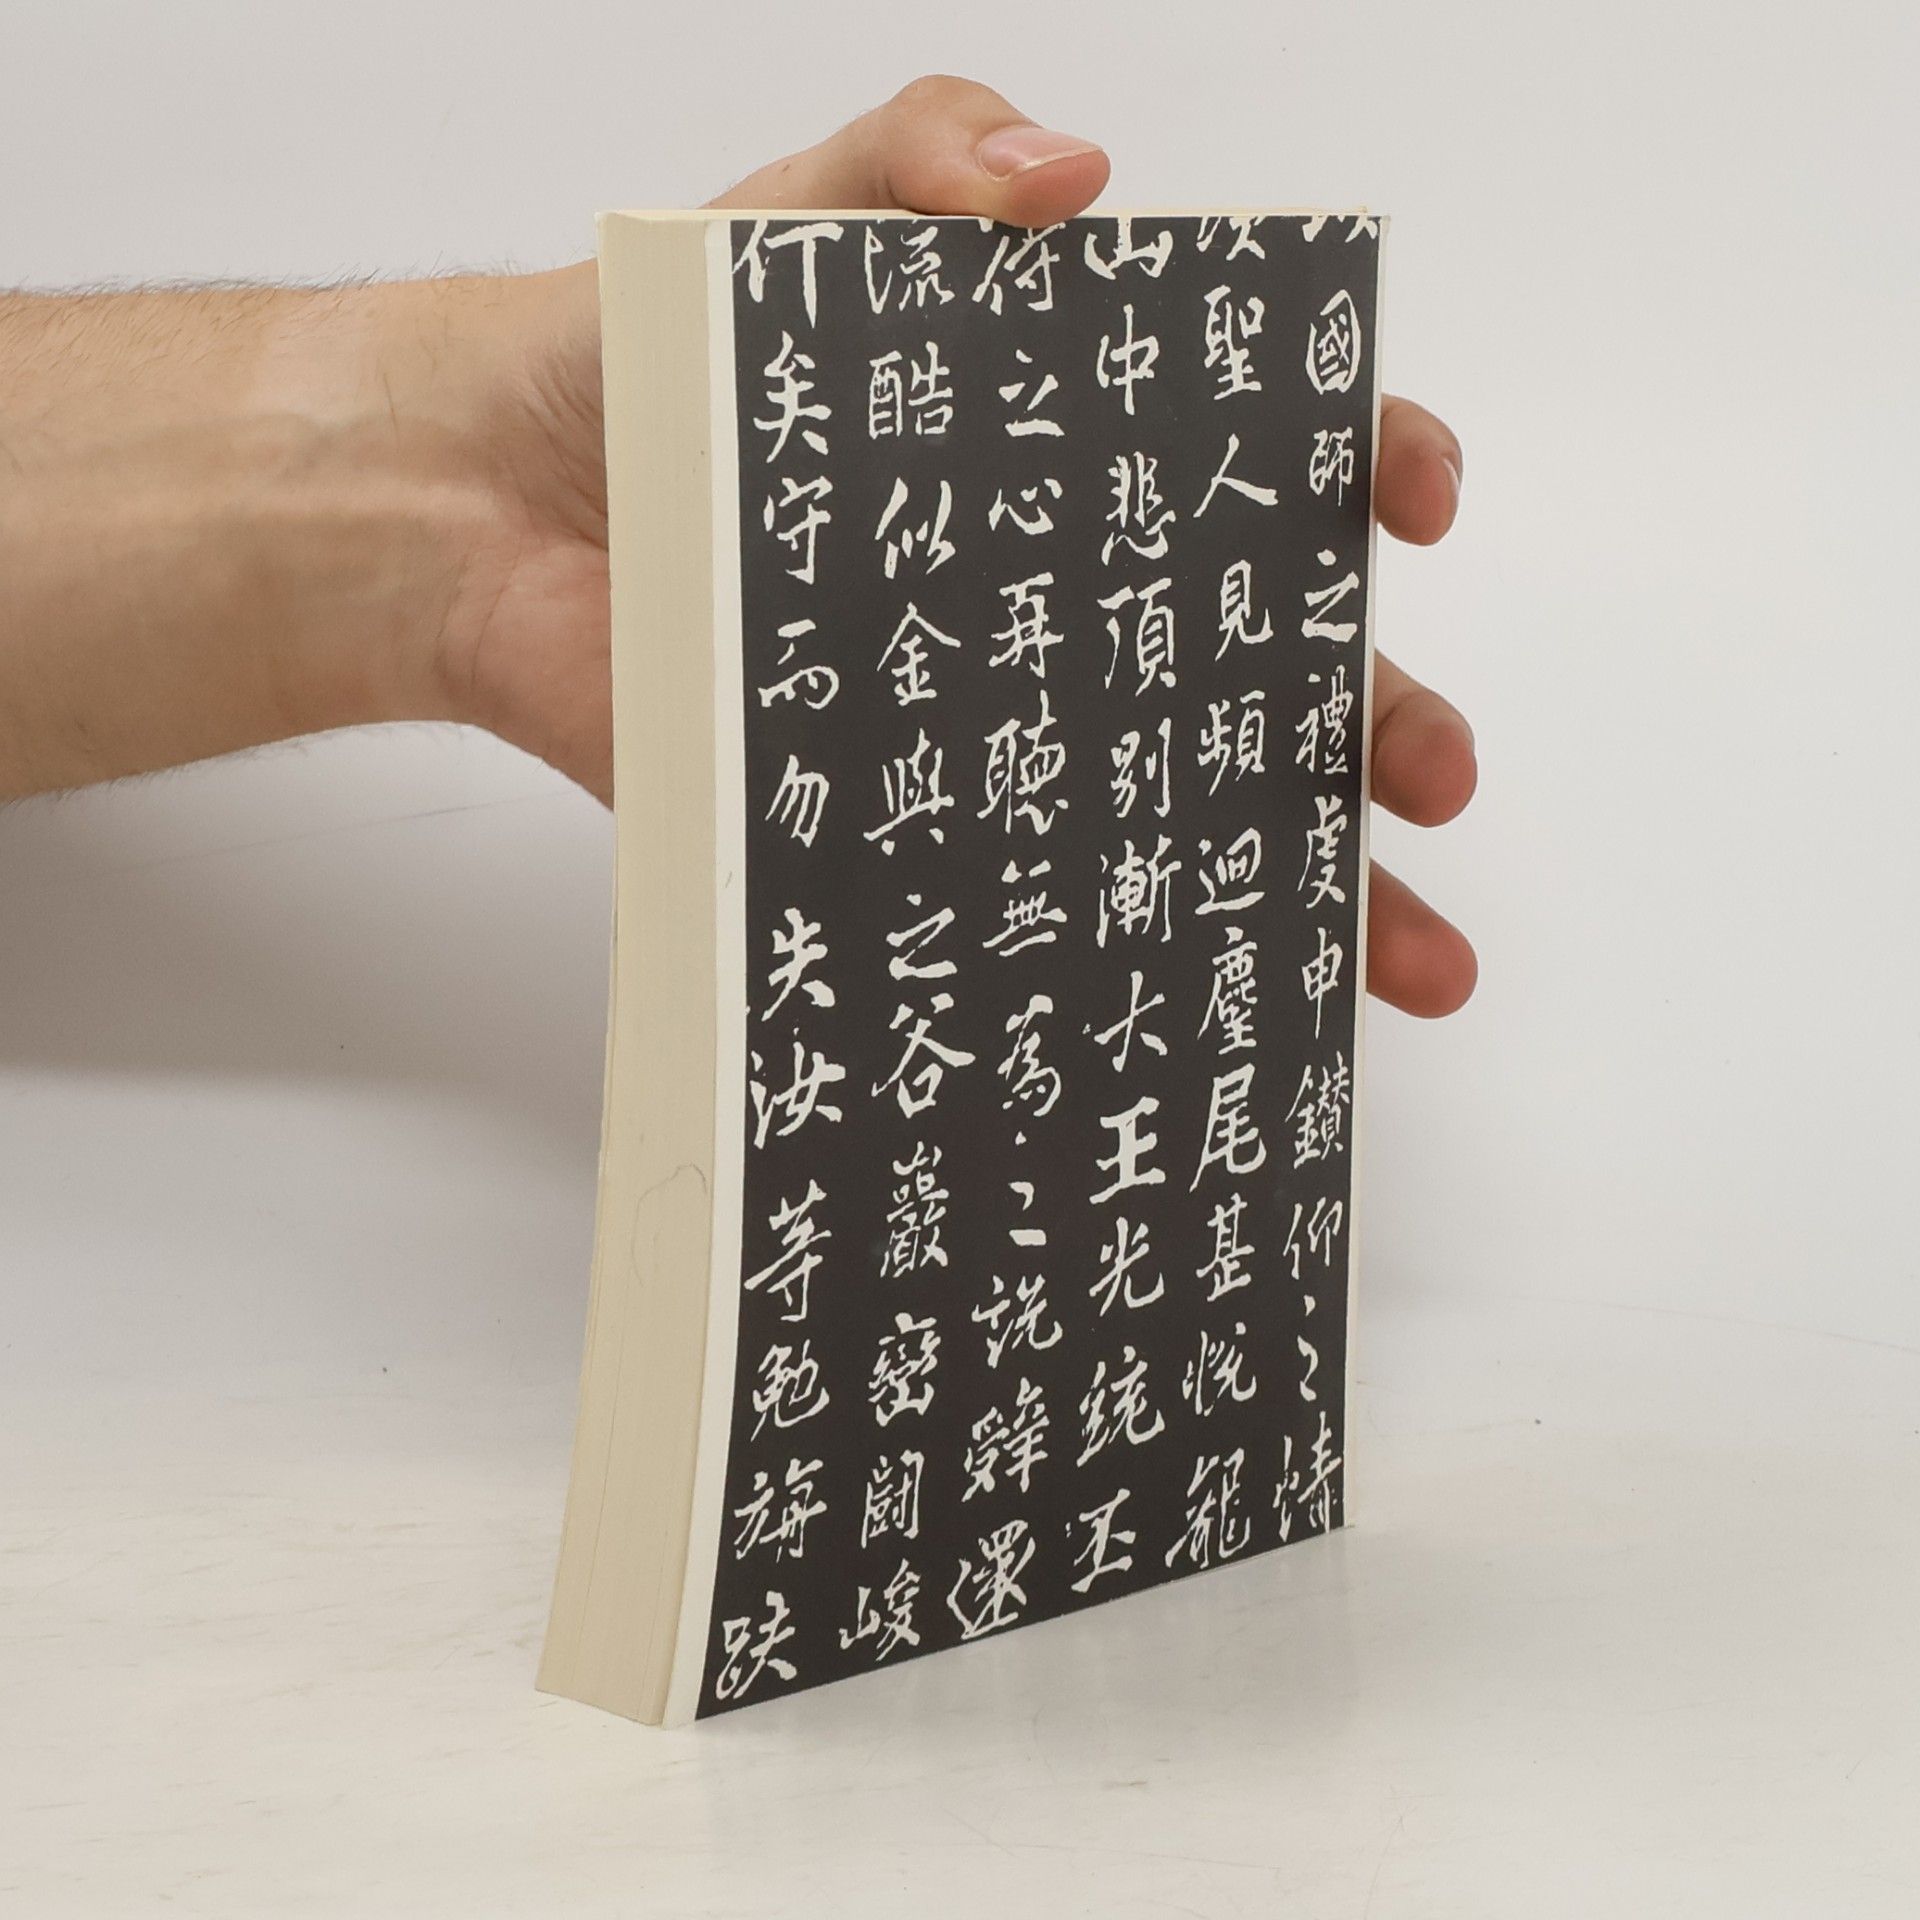 國師之禮虔申鑽仰之情
聖人見頻迴麈尾甚悅龍
山中悲頂別漸大王光統丕
待之心再聽無為之說辤還
流酷似金輿之谷巖巒鬪峻
行矣守而勿失汝等勉旃趺